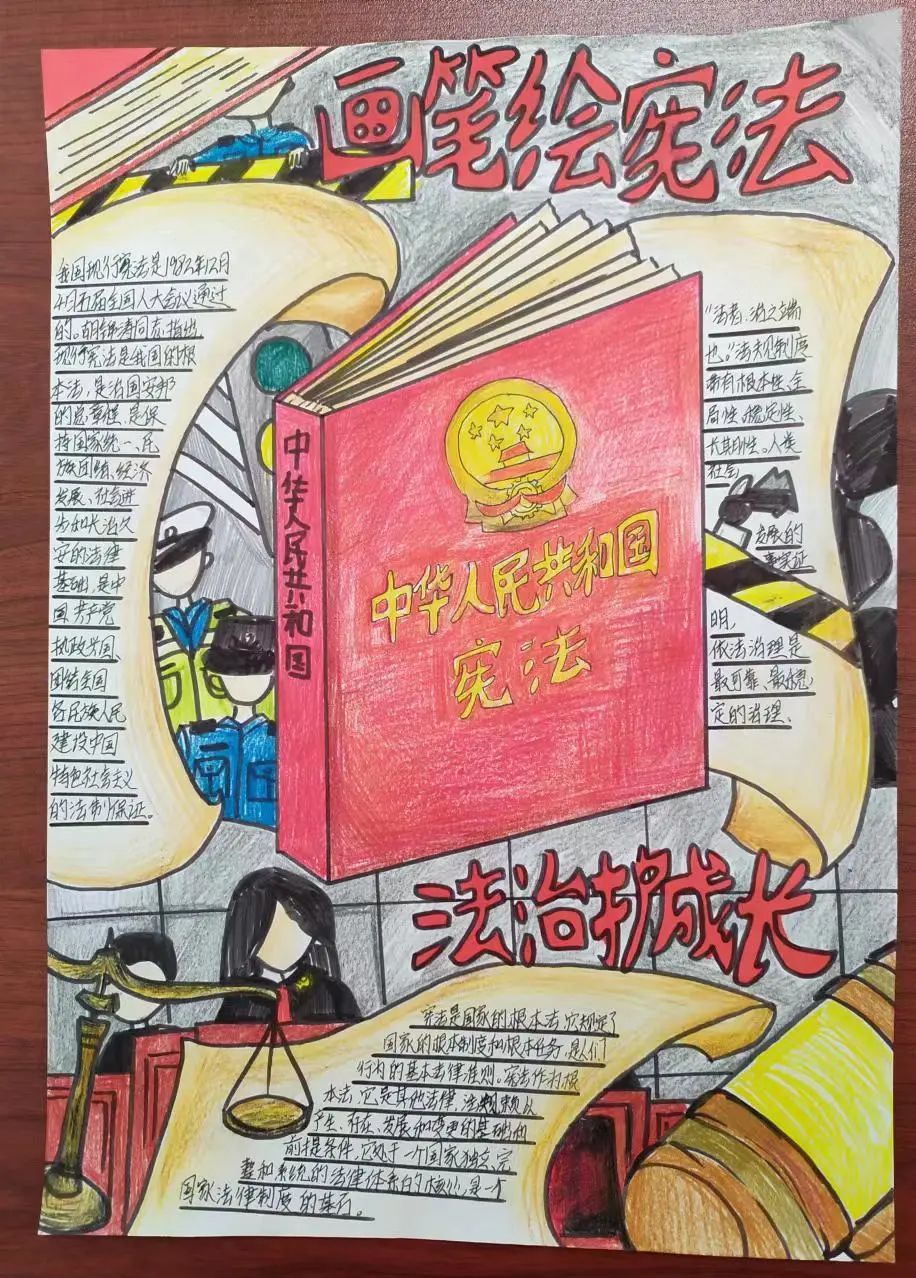 画笔绘宪法
我国现行宪法是1982年12月
4日五届全国人大会议通过
的。胡锦涛同志指出
现行宪法是我国的根
本法,是治国安邦
的总章程,是保
持国家统一、民
族团结、经济
发展、社会进
步和长治久
安的法律
基础,是中
国共产党
执政兴国
团结全国
各民族人民
建设中国
特色社会主义
的法制保证。
中华人民共和国
中华人民共和国
宪法
"法者,治之端
也。"法规制度
带有根本性、全
局性、稳定性、
长期性。人类
社会
发展的
事实证
明,
依法治理是
最可靠、最稳
定的治理、
法治护成长
宪法是国家的根本法,它规定了
国家的根本制度和根本任务,是人们
行为的基本法律准则。宪法作为根
本法,它是其他法律、法规赖以
产生、存在、发展和变更的基础和
前提条件,它处于一个国家独立、完
整和系统的法律体系的核心,是一个
国家法律制度的基石。